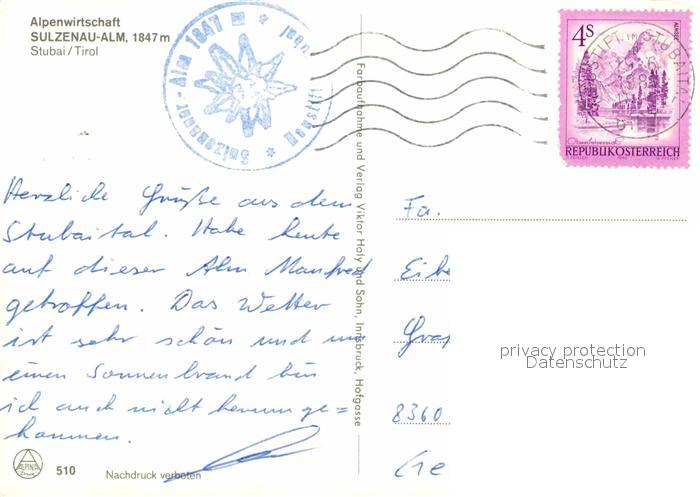 Alpenwirtschaft
SULZENAU-ALM, 1847 m
Stubai / Tirol
Sulzenauer-Alm 1847 m
4s
REPUBLIK ÖSTERREICH
Herzliche Grüße aus dem
Stubaital. Habe heute
auf dieser Alm Manfred
getroffen. Das Wetter
ist sehr schön und um
einen Sonnenbrand bin
ich auch nicht herumge=
kommen.
Farbaufnahme und Verlag Viktor Holy und Sohn, Innsbruck, Hofgasse
Fa.
Eibe
Gra
8360
privacy protection
Datenschutz
ALPINA
510
Nachdruck verboten